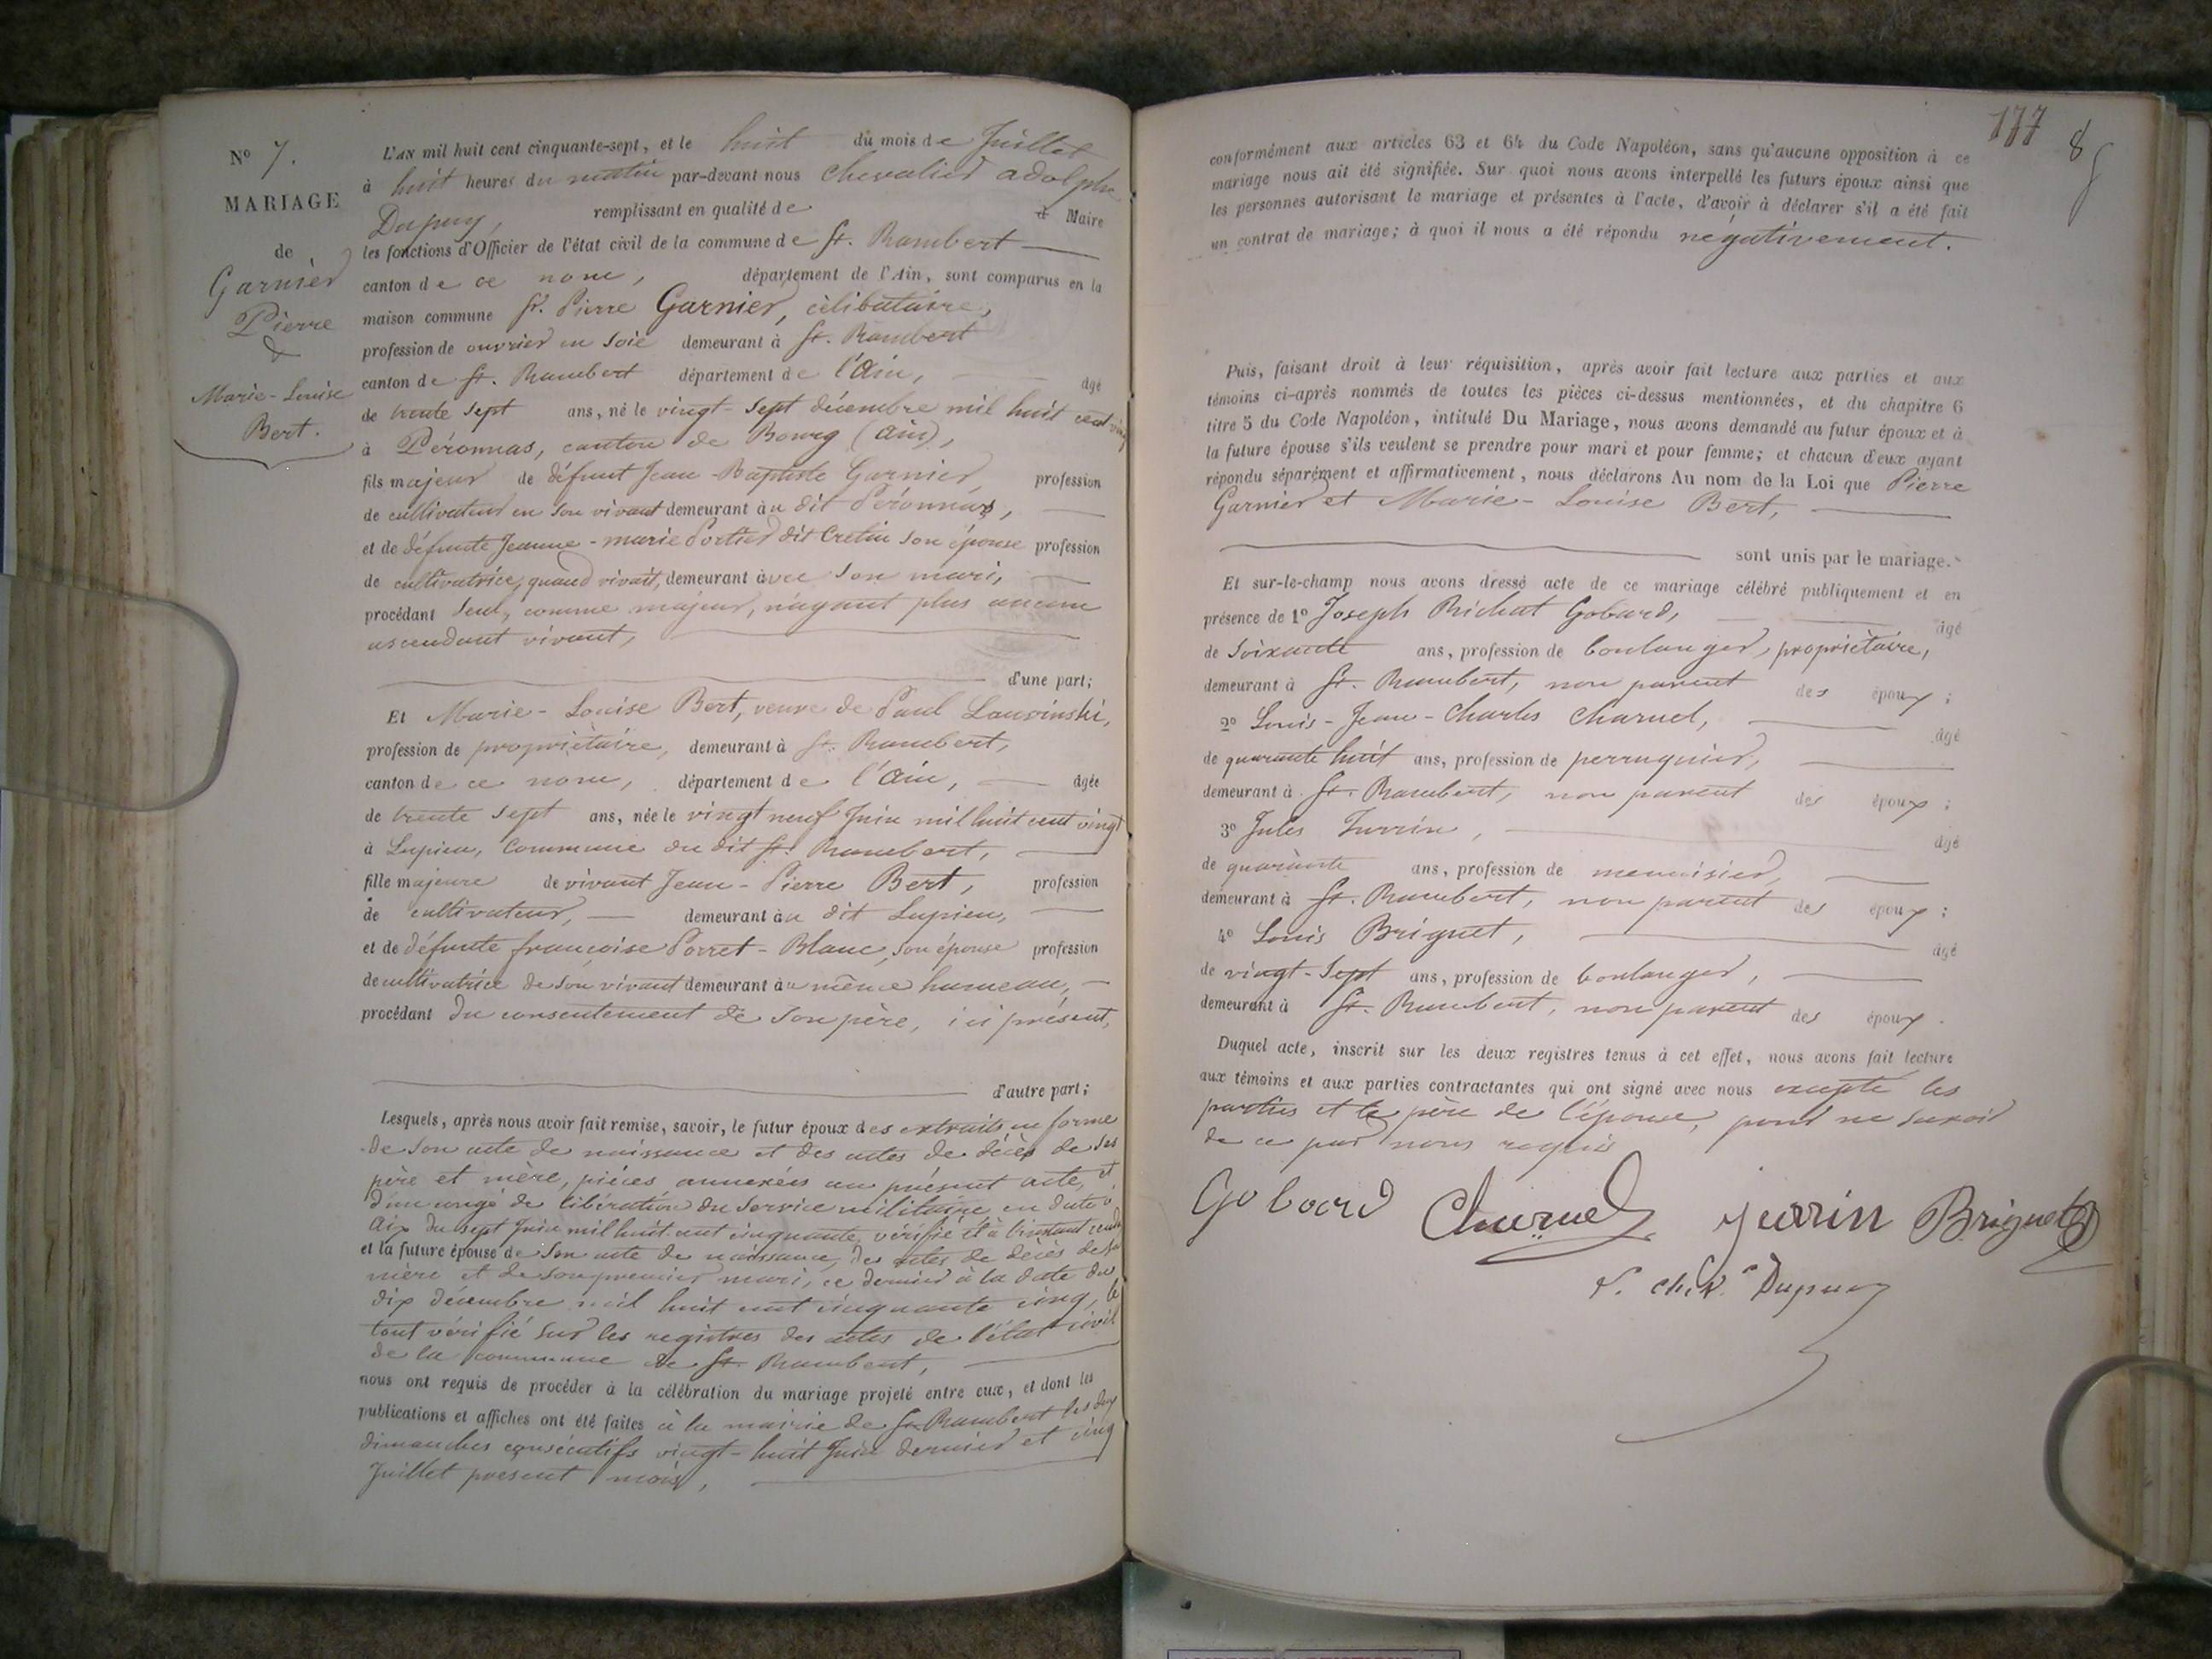 N° 7.
MARIAGE
de
Garnier
Pierre
&
Marie-Louise
Bert.
L'AN mil huit cent cinquante-sept, et le huit du mois de Juillet
à huit heures du matin par-devant nous Chevalier adolphe
Dupuy, remplissant en qualité de Maire
les fonctions d'Officier de l'état civil de la commune de St. Rambert
canton de ce nom, département de l'Ain, sont comparus en la
maison commune Sr. Pierre Garnier, célibataire,
profession de ouvrier en soie demeurant à St. Rambert
canton de St. Rambert département de l'Ain, âgé
de trente sept ans, né le vingt-sept décembre mil huit cent vingt
à Péronnas, canton de Bourg (Ain),
fils majeur de défunt Jean-Baptiste Garnier, profession
de cultivateur en son vivant demeurant au dit Péronnas,
et de défunte Jeanne-marie Portier dit Cretin son épouse profession
de cultivatrice, quand vivait, demeurant avec son mari,
procédant seul, comme majeur, n'ayant plus aucun
ascendant vivant,
d'une part;
Et Marie-Louise Bert, veuve de Paul Lauvinski,
profession de propriètaire, demeurant à St. Rambert,
canton de ce nom, département de l'Ain, âgée
de trente sept ans, née le vingt neuf Juin mil huit cent vingt
à Lupieu, Commune du dit St. Rambert,
fille majeure de vivant Jean-Pierre Bert, profession
de cultivateur, demeurant au dit Lupieu,
et de défunte françoise Porret-Blanc, son épouse profession
de cultivatrice de son vivant demeurant au même hameau,
procédant du consentement de son père, ici présent,
d'autre part;
Lesquels, après nous avoir fait remise, savoir, le futur époux des extraits en forme
de son acte de naissance et des actes de décès de ses
père et mère, pièces annexées au présent acte, et
d'un congé de libération du service militaire en date
Aix du sept Juin mil huit cent cinquante, vérifié et à l'instant rendu
et la future épouse de son acte de naissance, des actes de décès de sa
mère et de son premier mari, ce dernier à la date du
dix décembre mil huit cent cinquante cinq, le
tout vérifié sur les registres des actes de l'état civil
de la commune de St. Rambert,
nous ont requis de procéder à la célébration du mariage projeté entre eux, et dont les
publications et affiches ont été faites à la mairie de St. Rambert les deux
dimanches consécutifs vingt-huit Juin dernier et cinq
Juillet présent mois,
177
8
conformément aux articles 63 et 64 du Code Napoléon, sans qu'aucune opposition à ce
mariage nous ait été signifiée. Sur quoi nous avons interpellé les futurs époux ainsi que
les personnes autorisant le mariage et présentes à l'acte, d'avoir à déclarer s'il a été fait
un contrat de mariage; à quoi il nous a été répondu négativement.
Puis, faisant droit à leur réquisition, après avoir fait lecture aux parties et aux
témoins ci-après nommés de toutes les pièces ci-dessus mentionnées, et du chapitre 6
titre 5 du Code Napoléon, intitulé Du Mariage, nous avons demandé au futur époux et à
la future épouse s'ils veulent se prendre pour mari et pour femme; et chacun d'eux ayant
répondu séparément et affirmativement, nous déclarons Au nom de la Loi que Pierre
Garnier et Marie-Louise Bert,
sont unis par le mariage.
Et sur-le-champ nous avons dressé acte de ce mariage célébré publiquement et en
présence de 1° Joseph Richat Gobard, âgé
de soixante ans, profession de boulanger, propriètaire,
demeurant à St. Rambert, non parent des époux;
2° Louis-Jean-Charles Charnel, âgé
de quarante huit ans, profession de perruquier,
demeurant à St. Rambert, non parent des époux;
3° Jules Jurrin, âgé
de quarante ans, profession de menuisier,
demeurant à St. Rambert, non parent des époux;
4° Louis Briguet, âgé
de vingt-sept ans, profession de boulanger,
demeurant à St. Rambert, non parent des époux.
Duquel acte, inscrit sur les deux registres tenus à cet effet, nous avons fait lecture
aux témoins et aux parties contractantes qui ont signé avec nous excepté les
parties et le père de l'épouse, pour ne savoir
de ce par nous requis
Gobard Charnel Jurrin Briguet
Dupuy